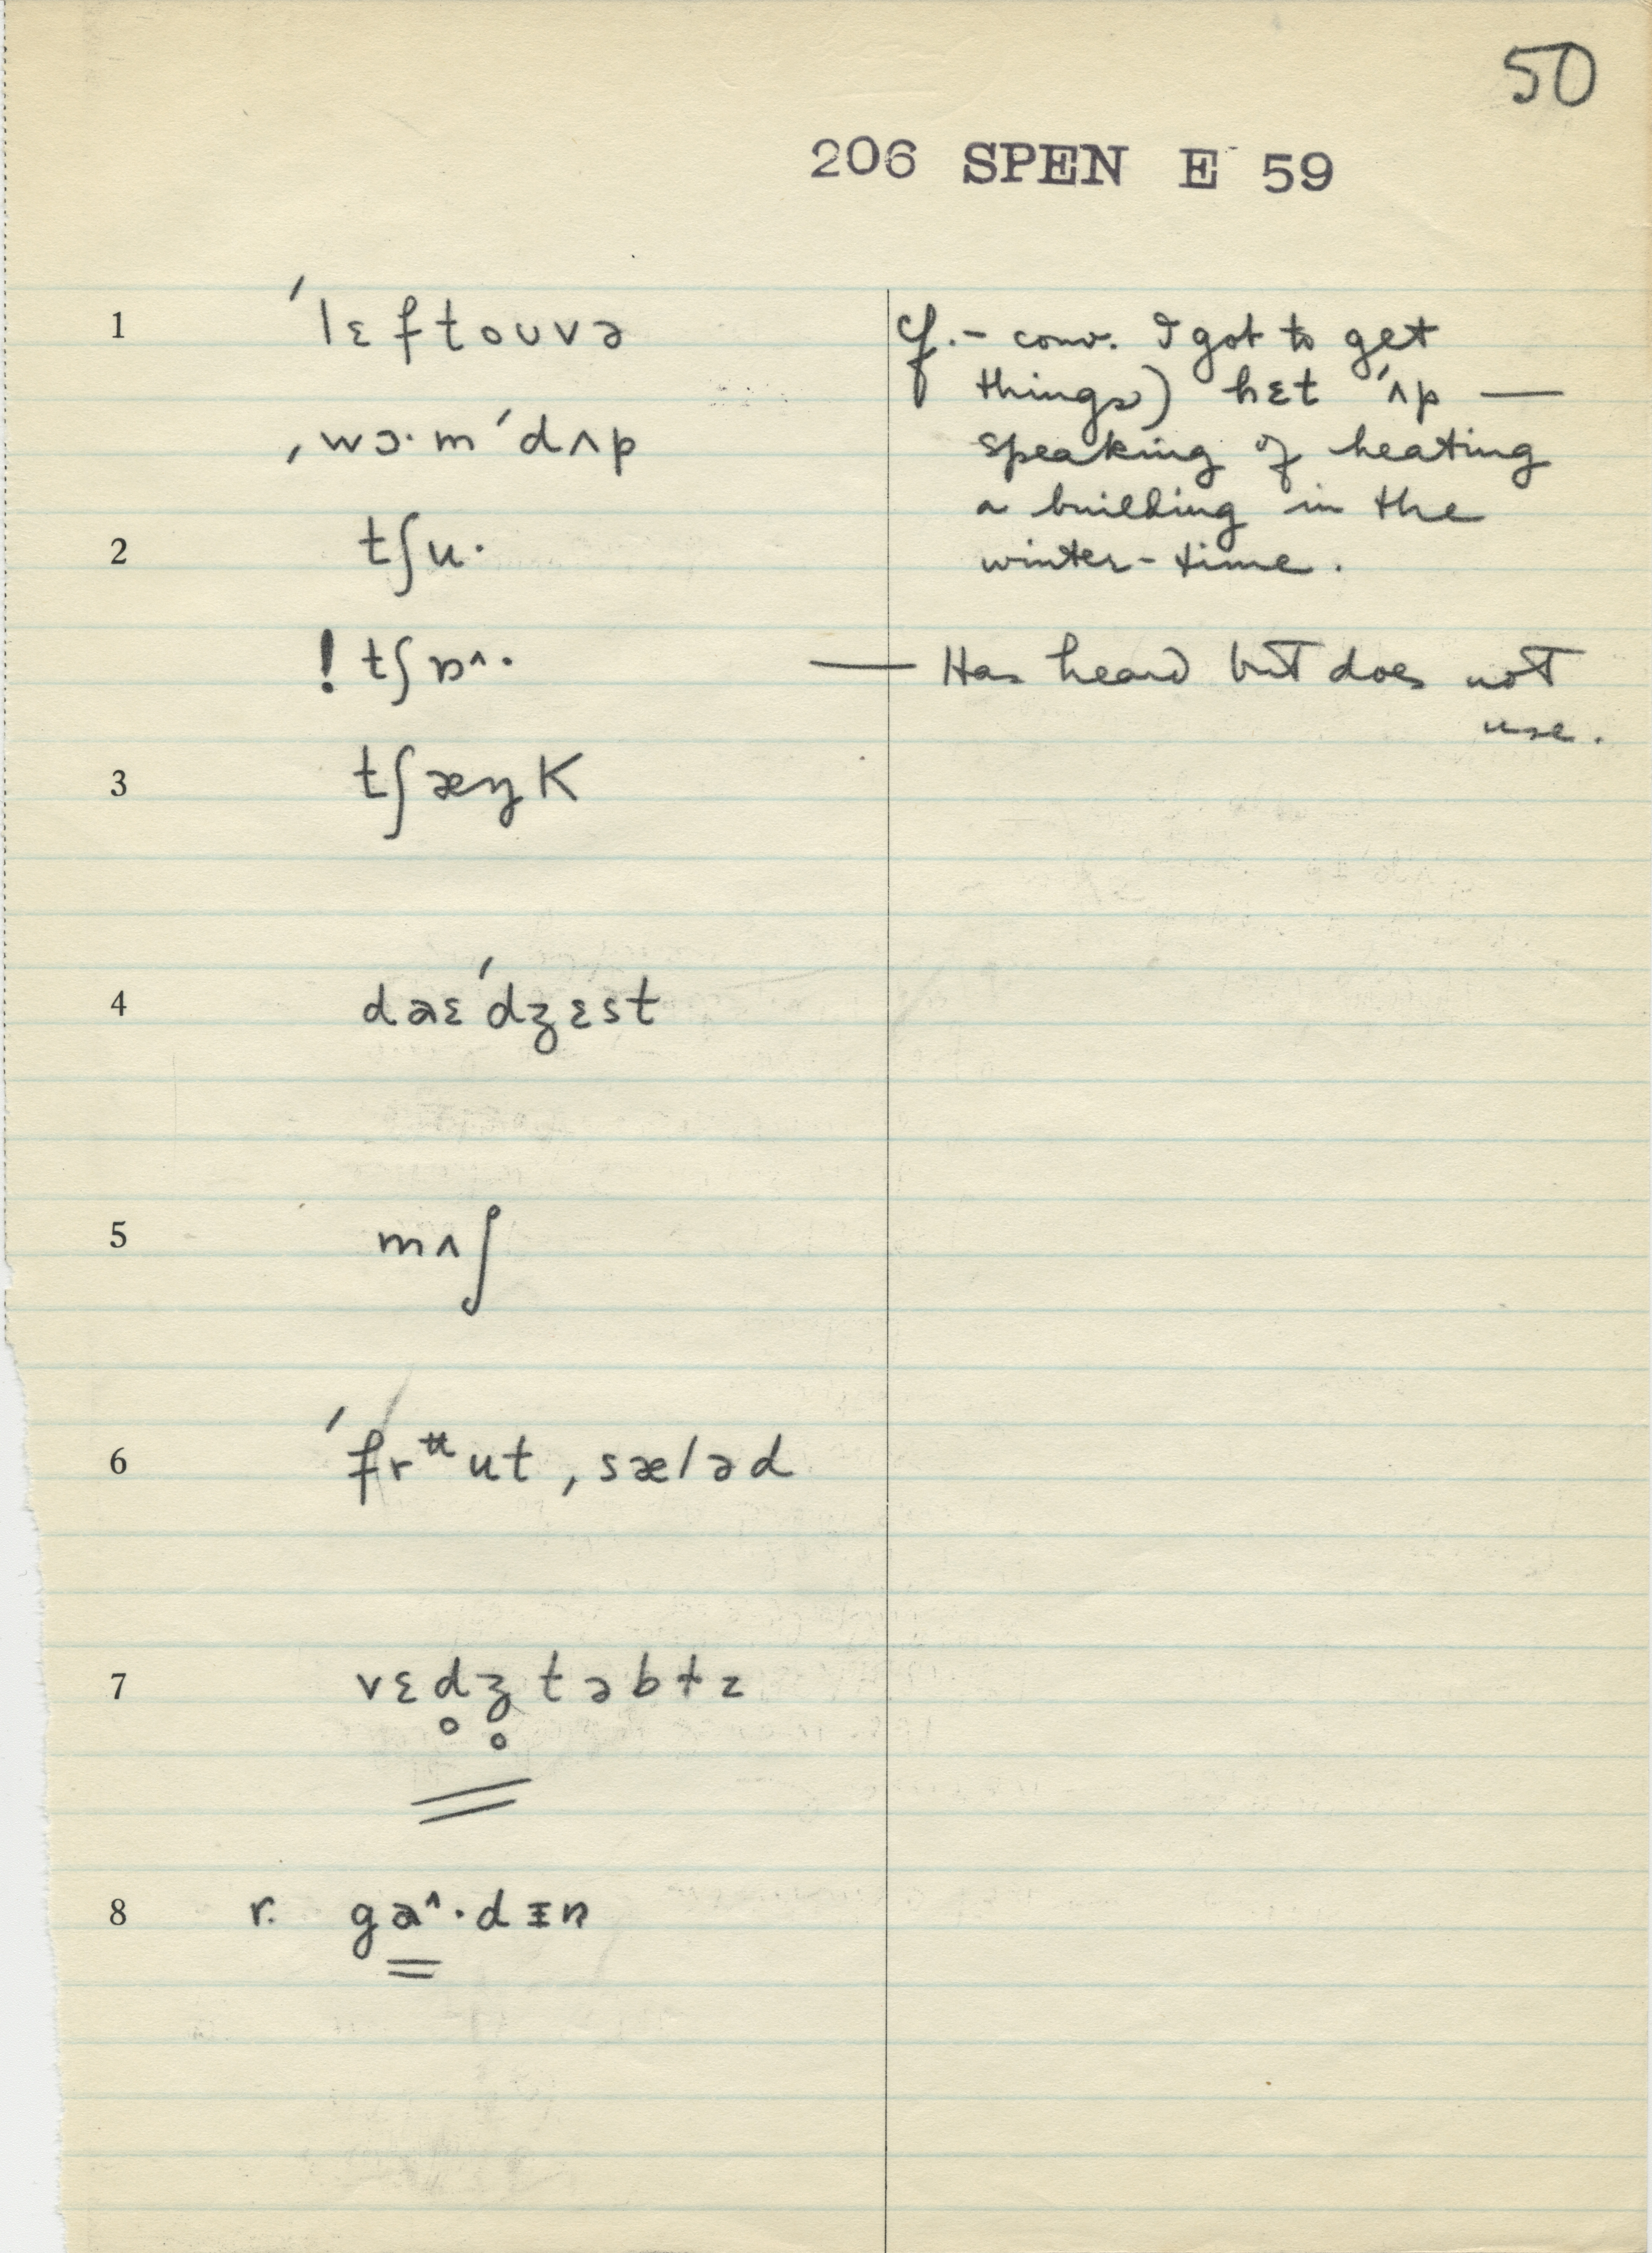 50
206 SPEN E 59
1 ˈlɛftoʊvə
ˌwɔ·mˈdʌp
cf. – conv. I got to get
things) hɛt ˈʌp —
speaking of heating
a building in the
winter-time.
2 tʃu·
! tʃɒ^· — Has heard but does not
use.
3 tʃæŋK
4 daɛˈdʒɛst
5 mʌʃ
6 ˈfrᵚut ˌsæləd
7 vɛd̥ʒ̊təbɫz
8 r. ga^·dɪn